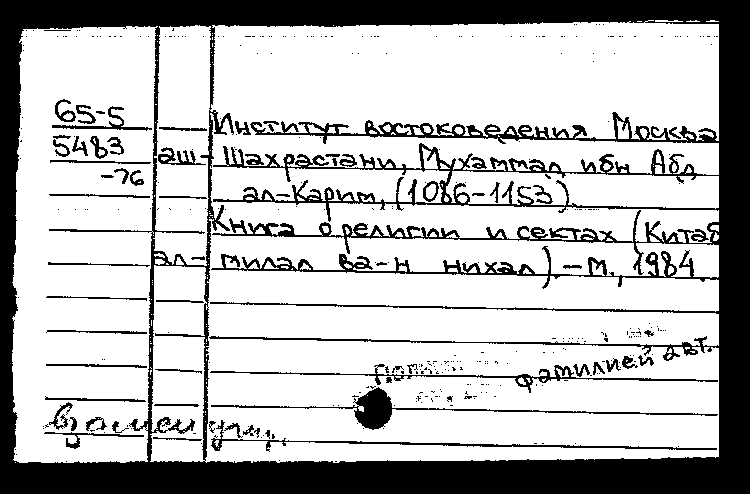 65-5
Институт востоковедения. Москва
5483
аш- Шахрастани, Мухаммад ибн Абд
-76
ал-Карим, (1086-1153).
Книга о религии и сектах (Китаб
ал- милал ва-н нихал).-М., 1984.
фамилией авт.
взамен